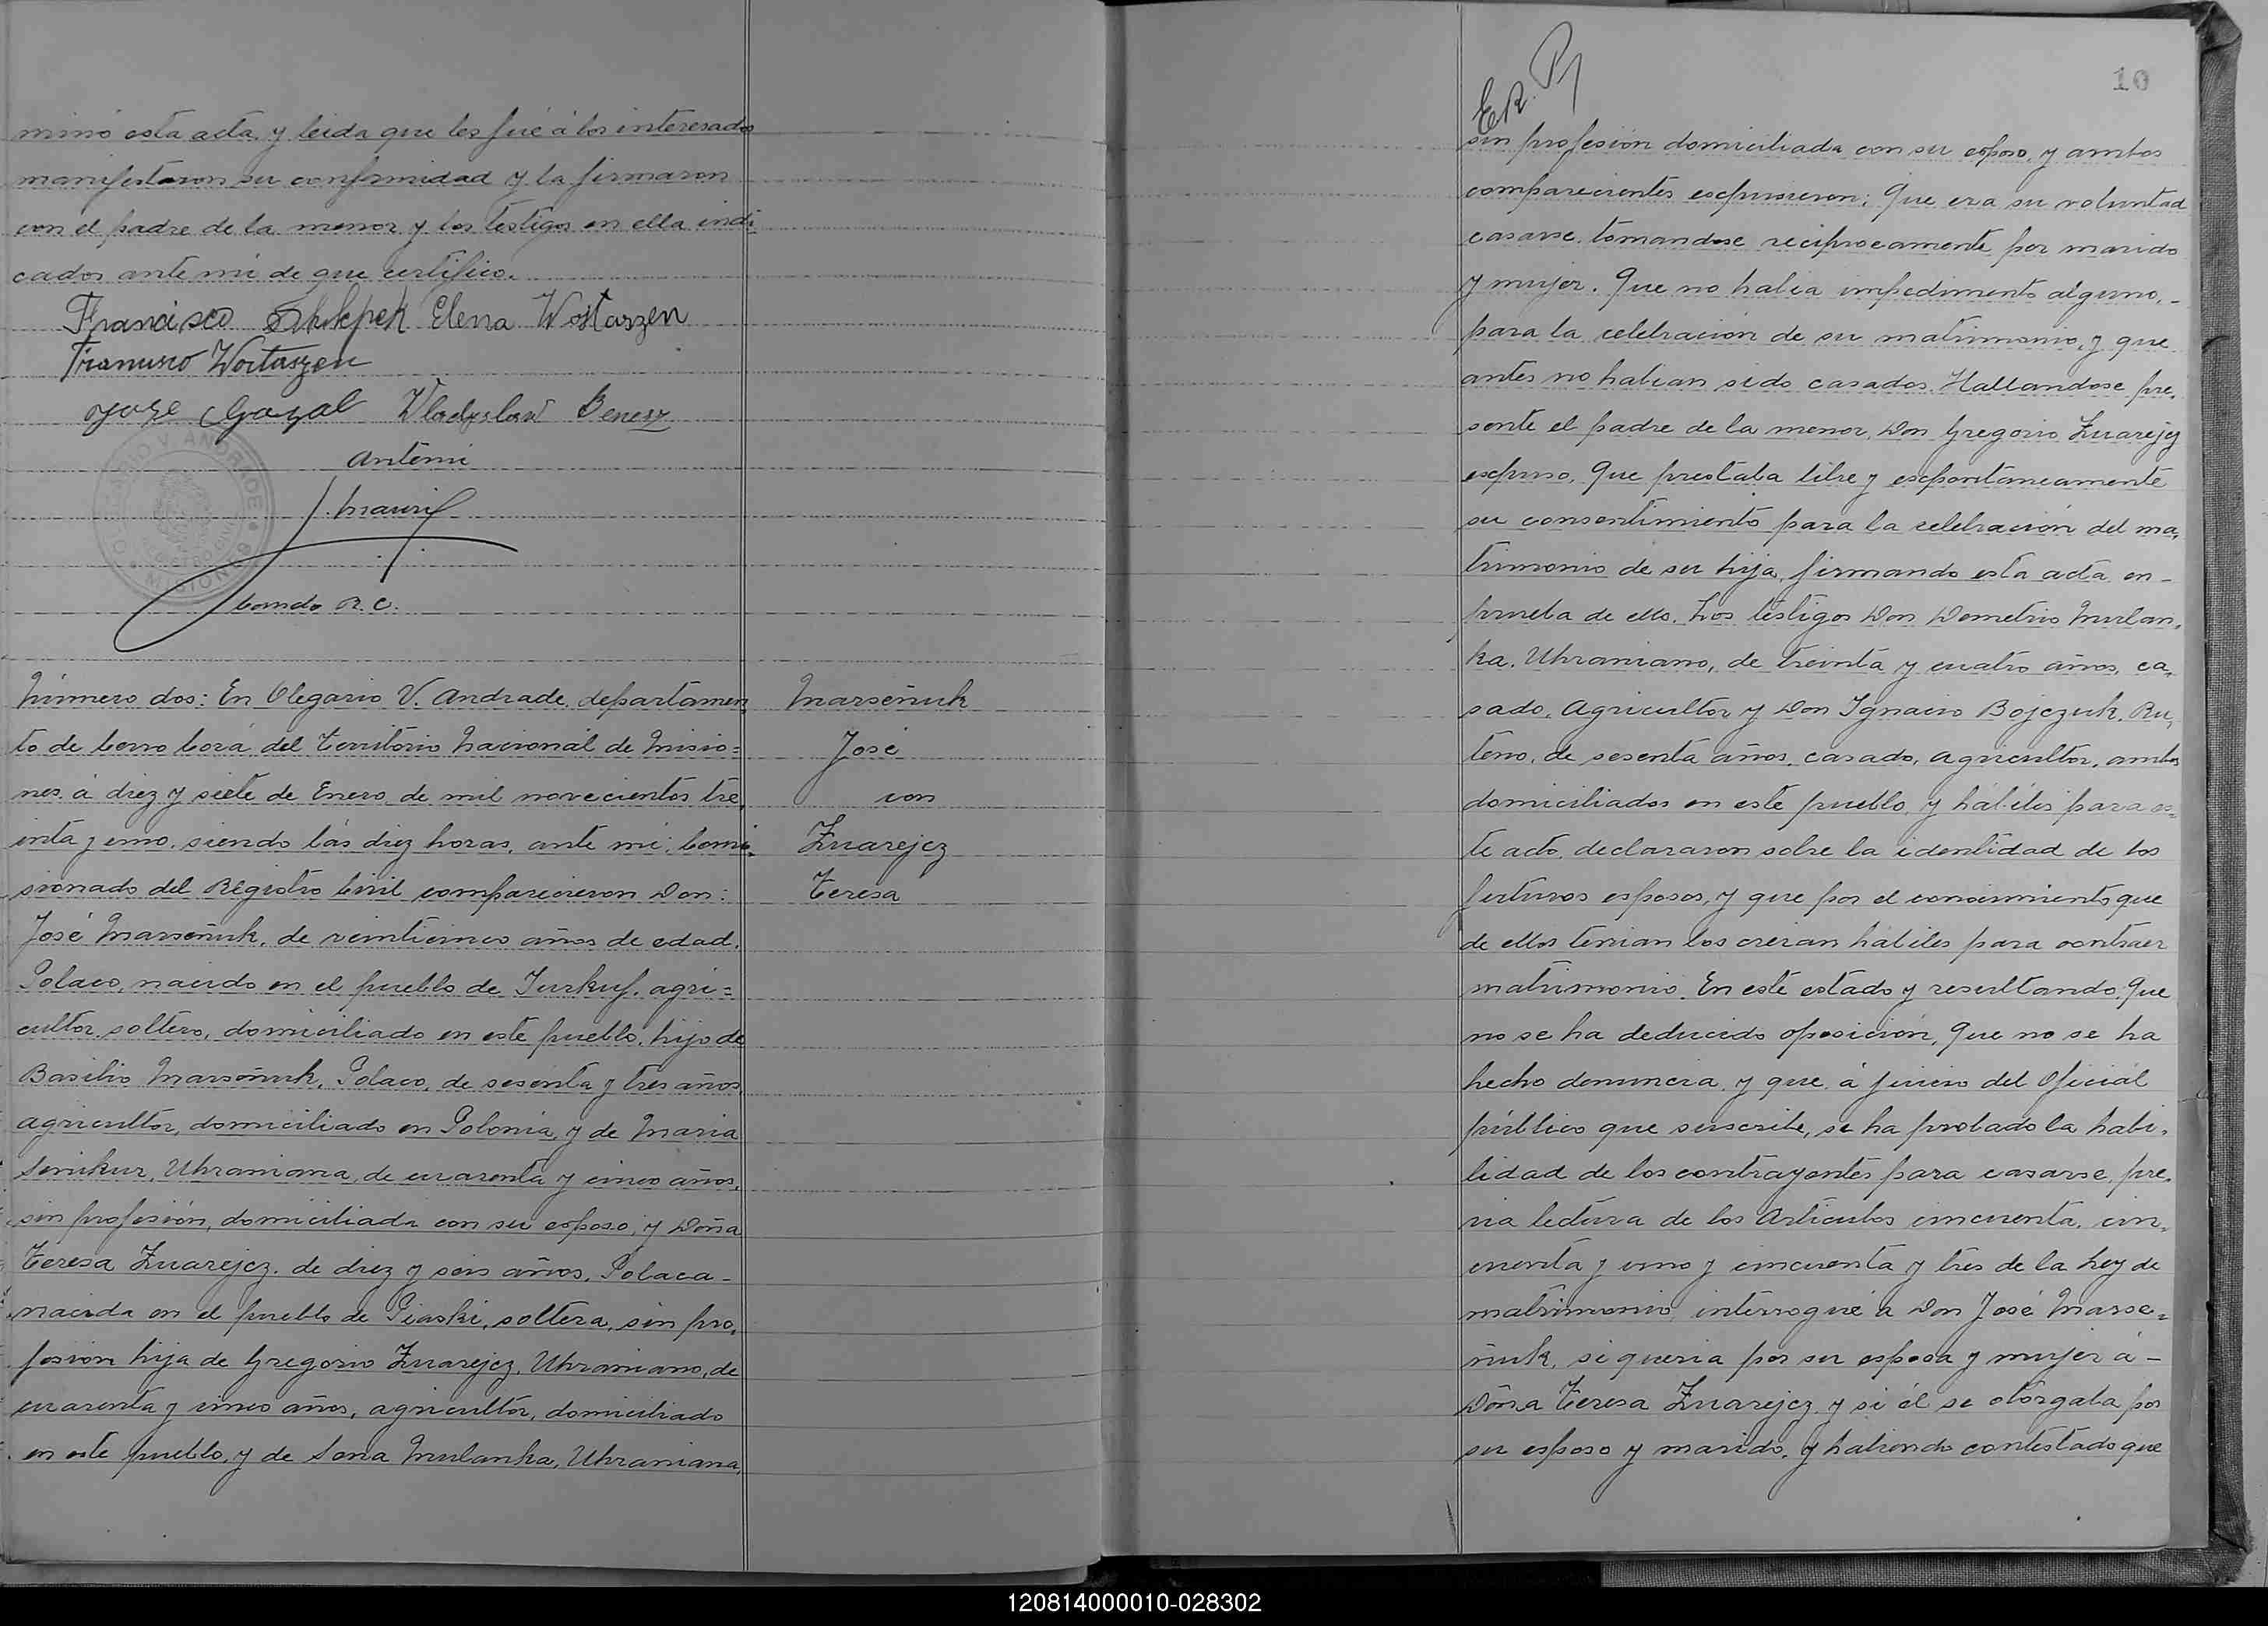 minó esta acta y leida que les fué á los interesados
manifestaron su conformidad y la firmaron
con el padre de la menor y los testigos en ella indi=
cados ante mi de que certifico.
Francisco Elena Wostaszen
Francisco Wostaszen
Jose Wladyslaw Benesz
Antemi
Comdo R.C.
Número dos: En Olegario V. Andrade, departamen
to de Cerro Corá del Territorio Nacional de Misio=
nes á diez y siete de Enero de mil novecientos tre,
inta y uno, siendo las diez horas, ante mi, Comi.
sionado del Registro Civil comparecieron Don:
José Marseñuk, de veinticinco años de edad,
Polaco, nacido en el pueblo de Turkuf, agri=
cultor, soltero, domiciliado en este pueblo, hijo de
Basilio Marseñuk, Polaco, de sesenta y tres años
agricultor, domiciliado en Polonia, y de Maria
Uhraniana, de cuarenta y cinco años,
sin profesión, domiciliada con su esposo, y Doña
Teresa Zuarejcz, de diez y seis años, Polaca-
nacida en el pueblo de Piaski, soltera, sin pro,
fesión hija de Gregorio Zuarejcz, Uhraniano, de
cuarenta y cinco años, agricultor, domiciliado
en este pueblo, y de Sona Mulanka, Uhraniana,
Marseñuk
José
con
Zuarejcz
Teresa
10
sin profesión domiciliada con su esposo, y ambos
comparecientes expusieron; Que era su voluntad
casarse tomandose reciprocamente por marido
y mujer. Que no habia impedimento alguno,-
para la celebración de su matrimonio, y que
antes no habian sido casados. Hallandose pre,
sente el padre de la menor, Don Gregorio Zuarejcz
expuso, Que prestaba libre y espontaneamente
su consentimiento para la celebración del ma,
trimonio de su hija, firmando esta acta en-
prueba de ello. Los testigos Don Demetrio Mulan,
ka, Uhraniano, de treinta y cuatro años, ca,
sado, Agricultor y Don Ignacio Bojczuk, Ru,
teno, de sesenta años, casado, agricultor, ambos
domiciliados en este pueblo, y hábiles para es=
te acto, declararon sobre la identidad de los
futuros esposos, y que por el conocimiento que
de ellos tenian los creian hábiles para contraer
matrimonio. En este estado y resultando: Que
no se ha deducido oposición, Que no se ha
hecho denuncia y que á juicio del Oficial
público que suscribe, se ha probado la habi,
lidad de los contrayentes para casarse, pre,
via lectura de los Articulos cincuenta, cin,
cuenta y uno y cincuenta y tres de la Ley de
matrimonio, interrogué a Don José Marse=
ñuk, si queria por su esposa y mujer á-
Doña Teresa Zuarejcz y si él se otorgaba por
su esposo y marido, y habiendo contestado que
120814000010-028302